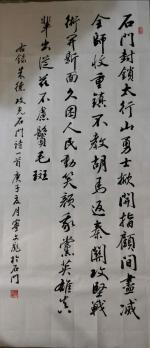 石門封鎖太行山勇士掀開指顧間盡滅
全師收重鎮不教胡馬返秦關攻堅戰
術開新面久困人民動笑顏我黨英雄真
輩出從茲不慮鬢毛斑
右錄朱德攻克石門詩一首庚子夏月寧文彪於石門